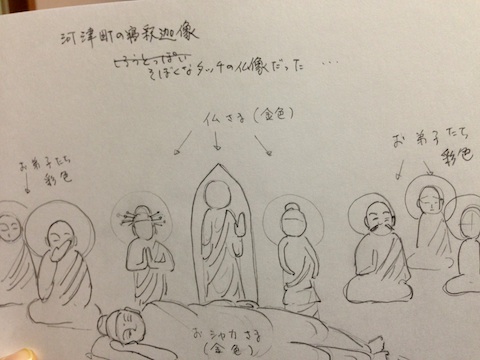 河津町の寝釈迦像
しろうとっぽい
そぼくなタッチの仏像だった …
仏さま(金色)
お弟子たち
彩色
お弟子たち
彩色
おシャカさま
(金色)